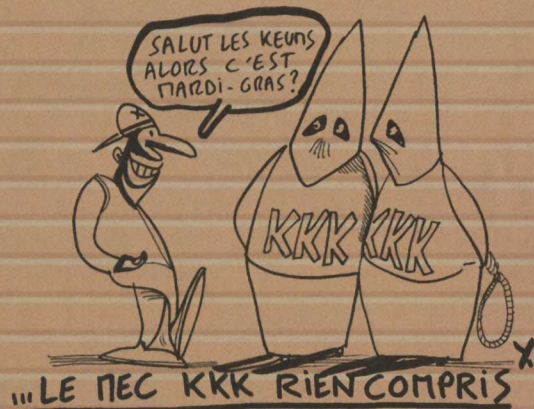 SALUT LES KEUMS
ALORS C'EST
MARDI-GRAS?
KKK KKK
...LE MEC KKK RIEN COMPRIS